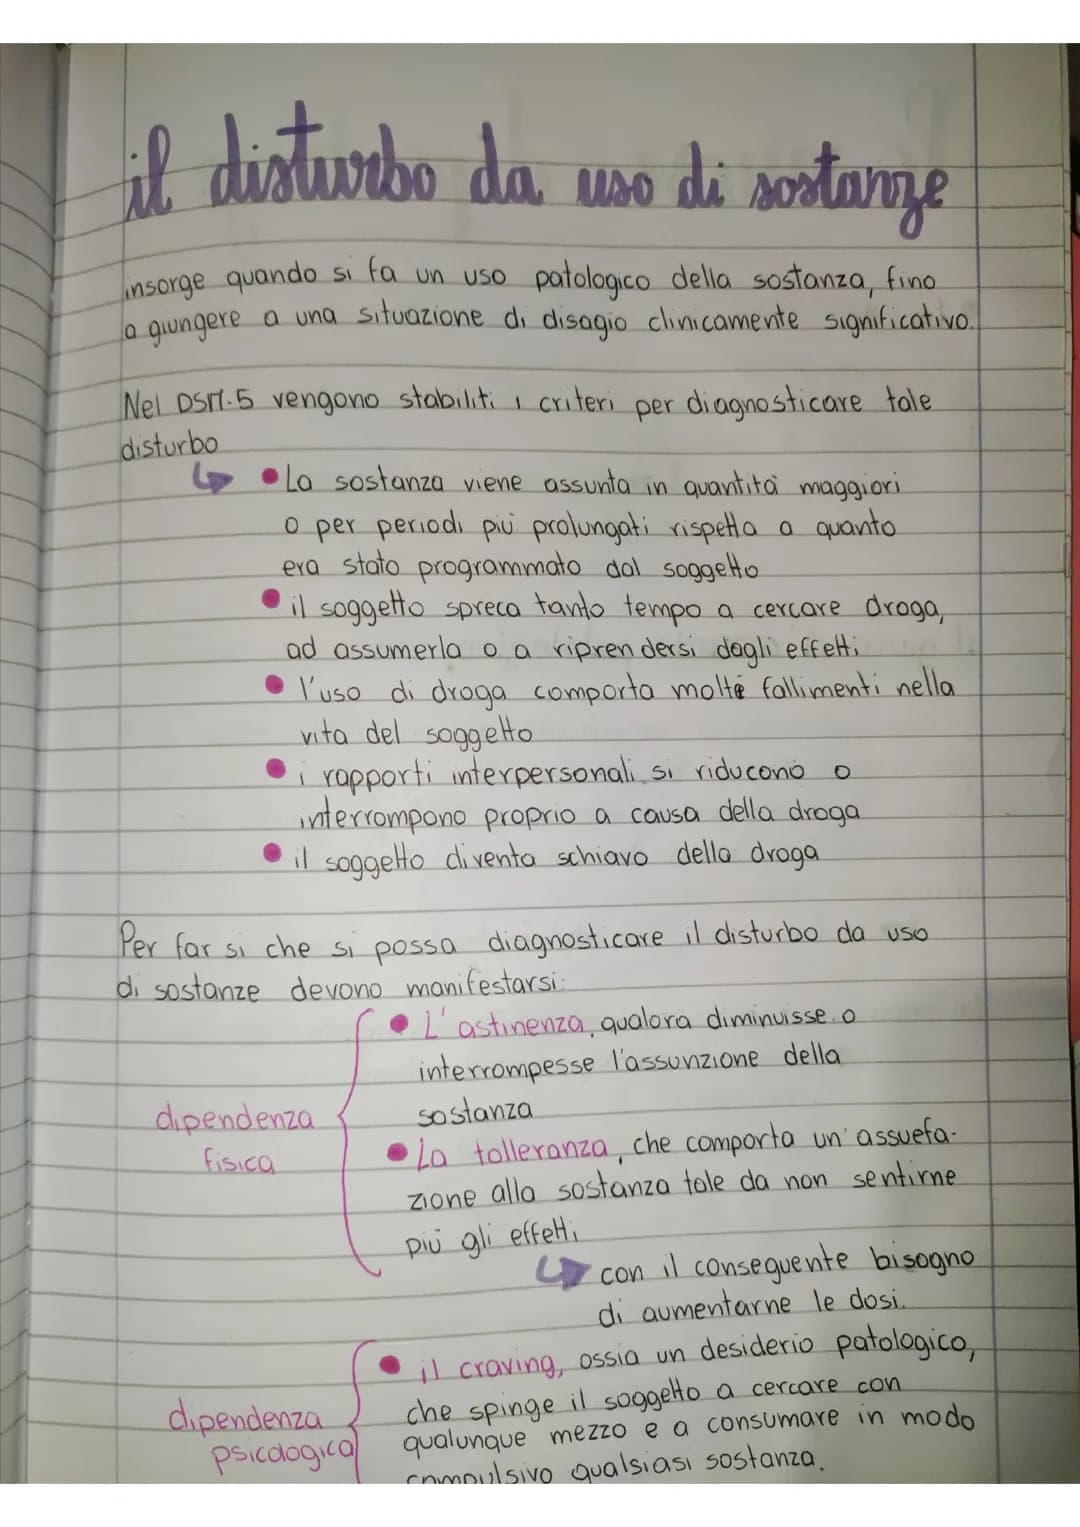 il disturbo da uso di sostanze
insorge quando si fa un uso patologico della sostanza, fino
a giungere a una situazione di disagio clinicamente significativo.
Nel DSM-5 vengono stabiliti i criteri per diagnosticare tale
disturbo
• La sostanza viene assunta in quantità maggiori
o per periodi più prolungati rispetto a quanto
era stato programmato dal soggetto
• il soggetto spreca tanto tempo a cercare droga,
ad assumerla o a riprendersi dagli effetti
• l'uso di droga comporta molti fallimenti nella
vita del soggetto
• i rapporti interpersonali si riducono o
interrompono proprio a causa della droga
• il soggetto diventa schiavo della droga
Per far si che si possa diagnosticare il disturbo da uso
di sostanze devono manifestarsi:
dipendenza
fisica
• L'astinenza, qualora diminuisse o
interrompesse l'assunzione della
sostanza
• La tolleranza, che comporta un'assuefa-
zione alla sostanza tale da non sentirne
più gli effetti
con il conseguente bisogno
di aumentarne le dosi.
dipendenza
psicologica
• il craving, ossia un desiderio patologico,
che spinge il soggetto a cercare con
qualunque mezzo e a consumare in modo
compulsivo qualsiasi sostanza.